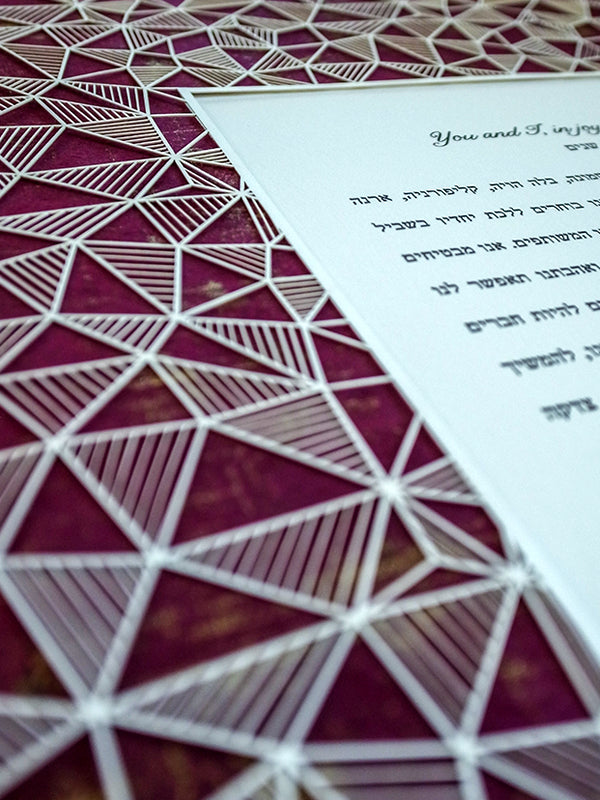 You and I, in joy
שנים
בלה הויה, קליפורניה, ארנה
בוחרים ללכת יחדיו בשביל
המשותפים. אנו מבטיחים
ואהבתנו תאפשר לנו
להיות חברים
להמשיך
צדקה